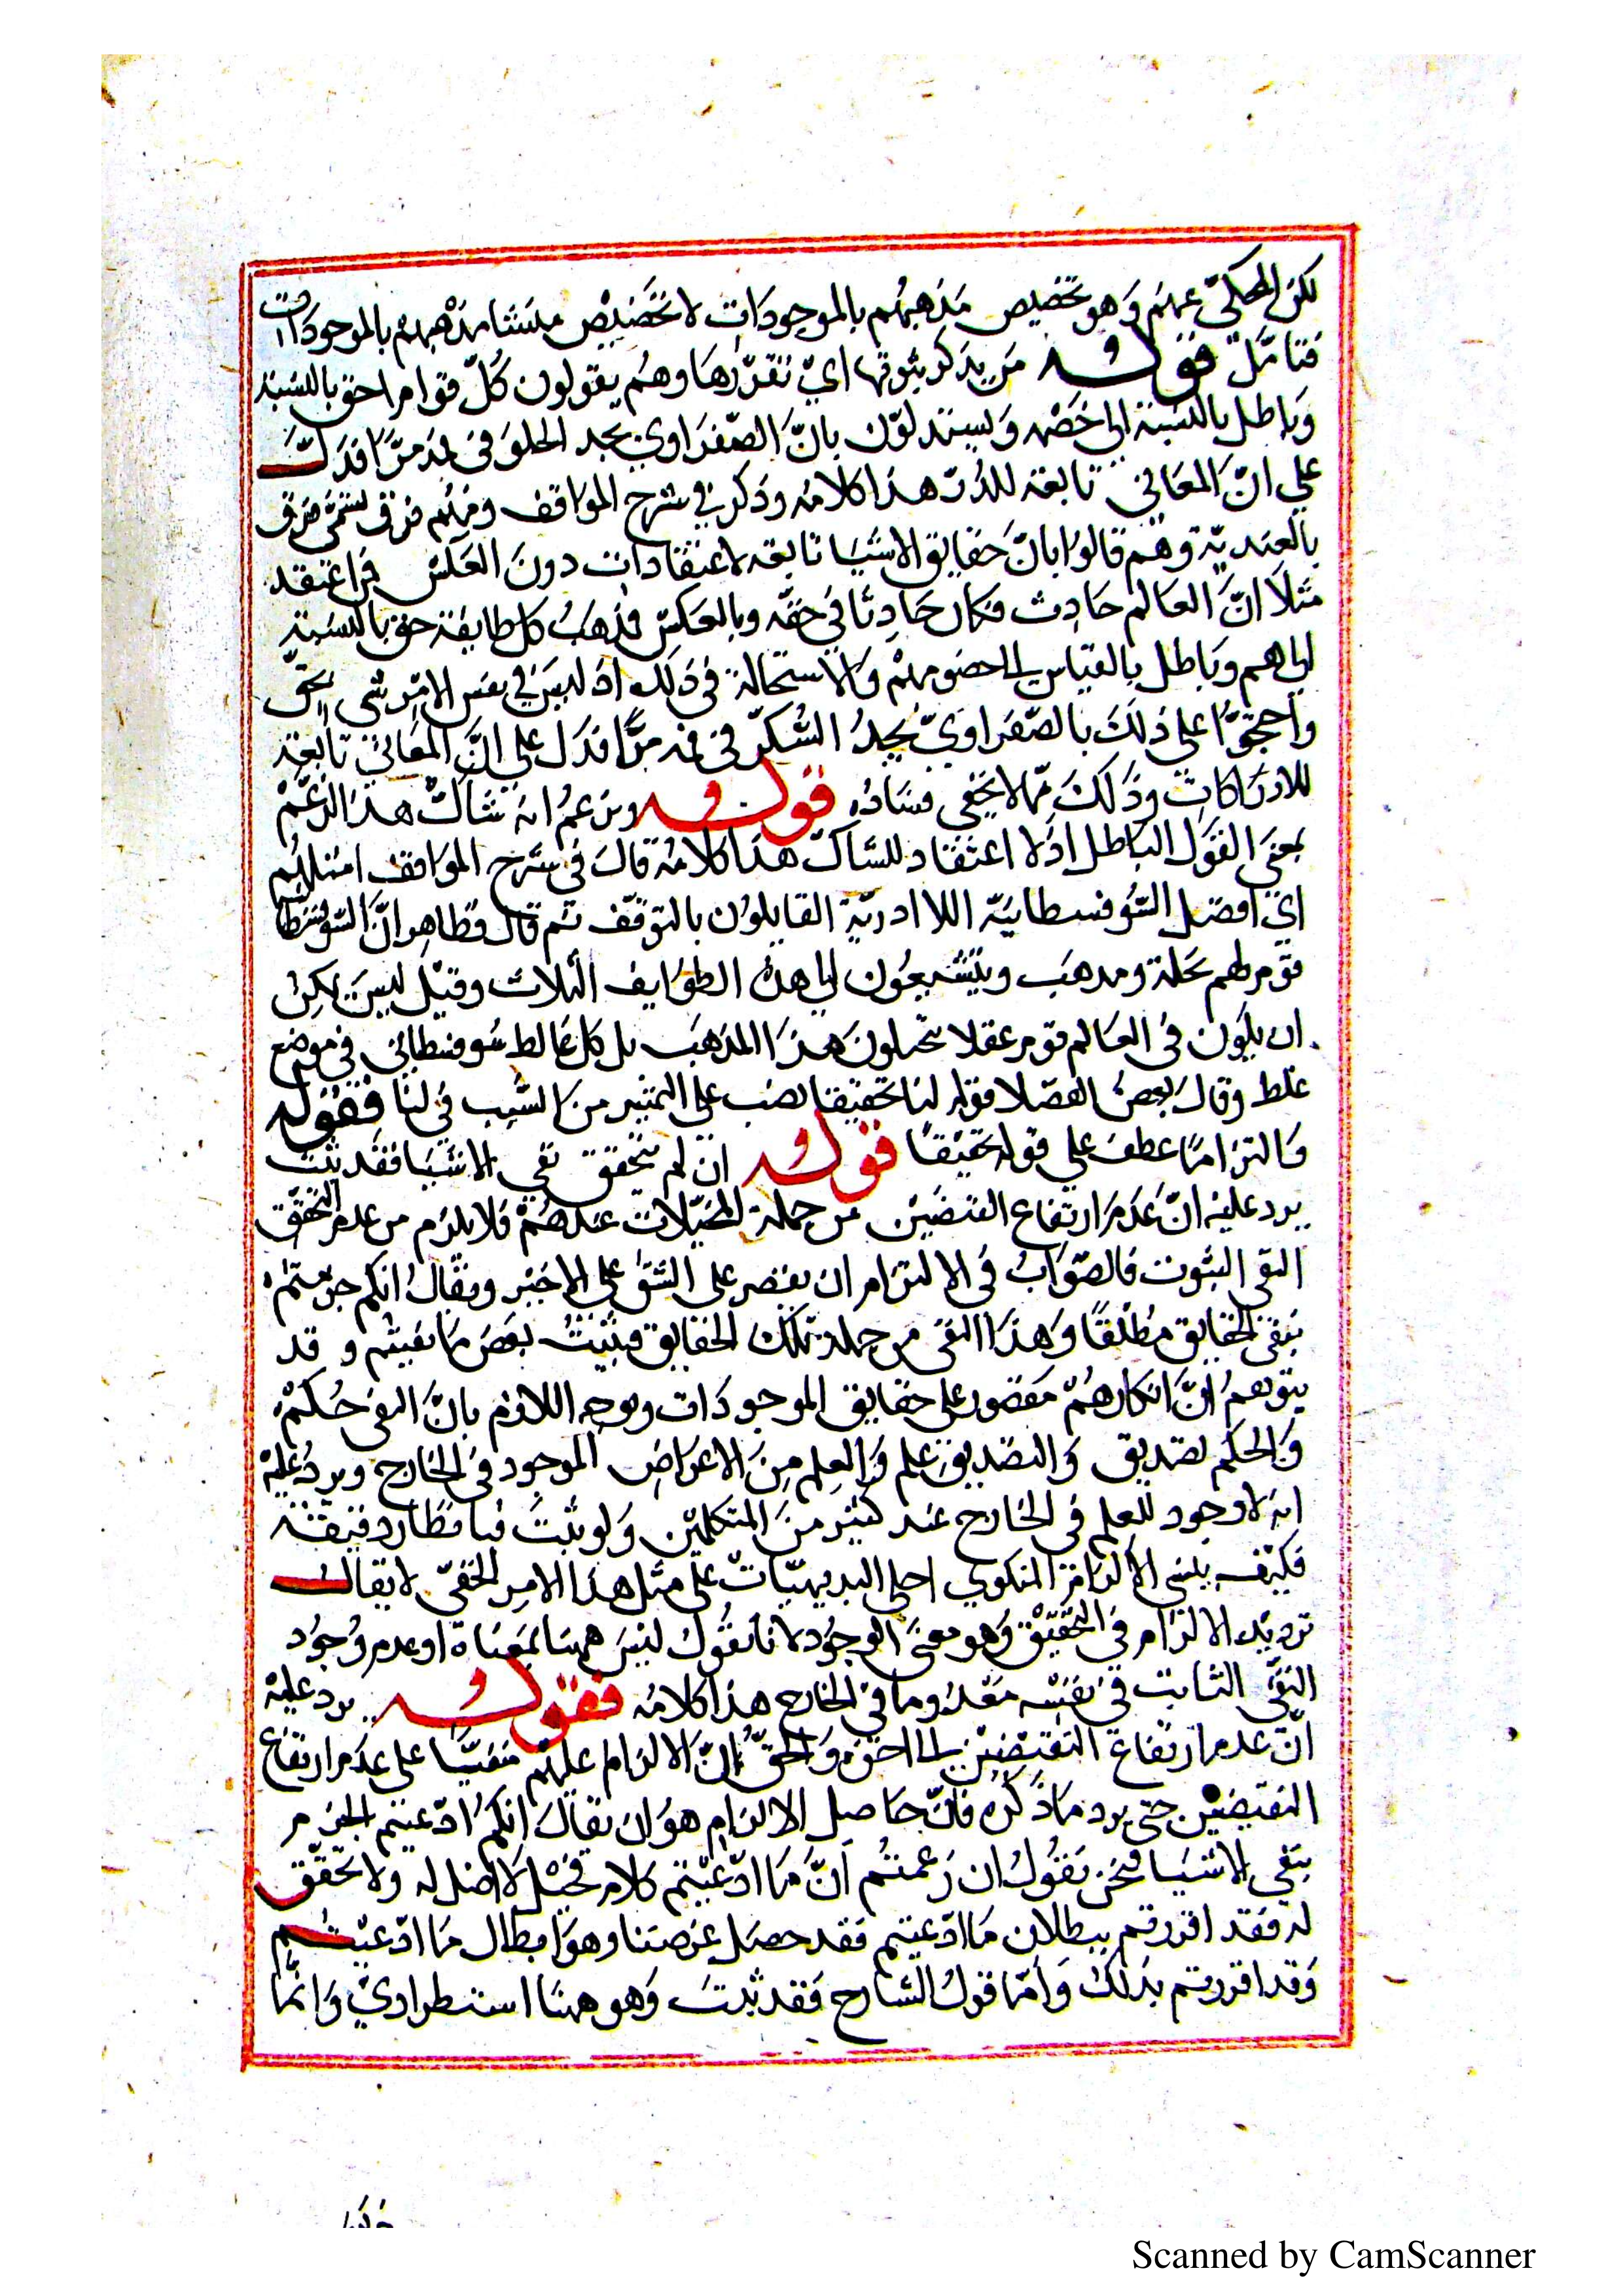 لكن المحكي عنهم وهو تخصيص مذهبهم بالموجودات لا تخصيص منشا مذهبهم بالموجودات
فتامل قوله من يذكر ثبوتها اي تقررها وهم يقولون كل قوم احق بالنسبة
وباطل بالنسبة الى خصمه ويستدلون بان الصفراوي يجد الحلو في فمه مرا فدل
علي ان المعاني تابعة للادراك هذا كلامه وذكر في شرح المواقف ومنهم فرق تسمى فرق
بالعندية وهم قالوا بان حقايق الاشيا تابعة لاعتقادات دون العكس فمن اعتقد
مثلا ان العالم حادث فكان حادثا في حقه وبالعكس فمذهب كل طايفة حق بالنسبة
اليهم وباطل بالقياس الى خصومهم ولا استحالة في ذلك اذ ليس في نفس الامر شي بحق
واحتجوا على ذلك بالصفراوي يجد السكر في فمه مرا فدل على ان المعاني تابعة
للادراكات وذلك مما لا يخفى فساده قوله ويزعم انه شاك هذا الزعم
بمعنى القول الباطل اذ لا اعتقاد للشاك هذا كلامه قال في شرح المواقف امثلهم
اي افضل السوفسطائية اللاادرية القايلون بالتوقف ثم قال فظاهر ان السوفسطائية
قوم لهم نحلة ومذهب ويتشعبون الى هذه الطوايف الثلاث وقيل ليس يمكن
ان يكون في العالم قوم عقلا ينتحلون هذا المذهب بل كل غالط سوفسطائي في موضع
غلط وقال بعض الفضلا قوله لنا تحقيقا نصب على التمييز من النسب في لنا فقوله
والتزاما عطف على قوله تحقيقا قوله ان لم يتحقق نفي الاشيا فقد ثبت
يرد عليه ان عدم ارتفاع النقيضين من جملة المخيلات عندهم فلا يلزم من عدم التحقق
النفي الثبوت فالصواب في الالتزام ان يقتصر على الشق على الاخير ويقال انكم جزمتم
بنفي الحقايق مطلقا وهذا النفي من جملة تلك الحقايق فيثبت بعض ما نفيتم و قد
يتوهم ان انكارهم مقصور على حقايق الموجودات ويوجه اللازم بان النفي حكم
والحكم تصديق والتصديق علم والعلم من الاعراض الموجود في الخارج ويرد عليه
انه لا وجود للعلم في الخارج عند كثير من المتكلمين ولو ثبت فبانظار دقيقة
فكيف يبنى الالزام لمنكري اجلى البديهيات على مثل هذا الامر الخفي لا يقال
ترديد الالزام في التحقيق وهو معنى الوجود لانا نقول ليس ههنا بمعناه او عدم وجود
النفي الثابت في نفسه معدوما في الخارج هذا كلامه فقوله يرد عليه
ان عدم ارتفاع النقيضين الى اخره والحق ان الالزام عليهم مبنيا على عدم ارتفاع
النقيضين حتى يرد ما ذكره فان حاصل الالزام هو ان يقال انكم ادعيتم الجزم
بنفي الاشيا فنحن نقول ان زعمتم ان ما ادعيتم كلام مخيل لا اصل له ولا تحقق
له فقد اقررتم ببطلان ما ادعيتم فقد حصل غرضنا وهو ابطال ما ادعيتم
وقد اقررتم بذلك واما قول الشارح فقد ثبت وهو ههنا استطرادي وانما
Scanned by CamScanner